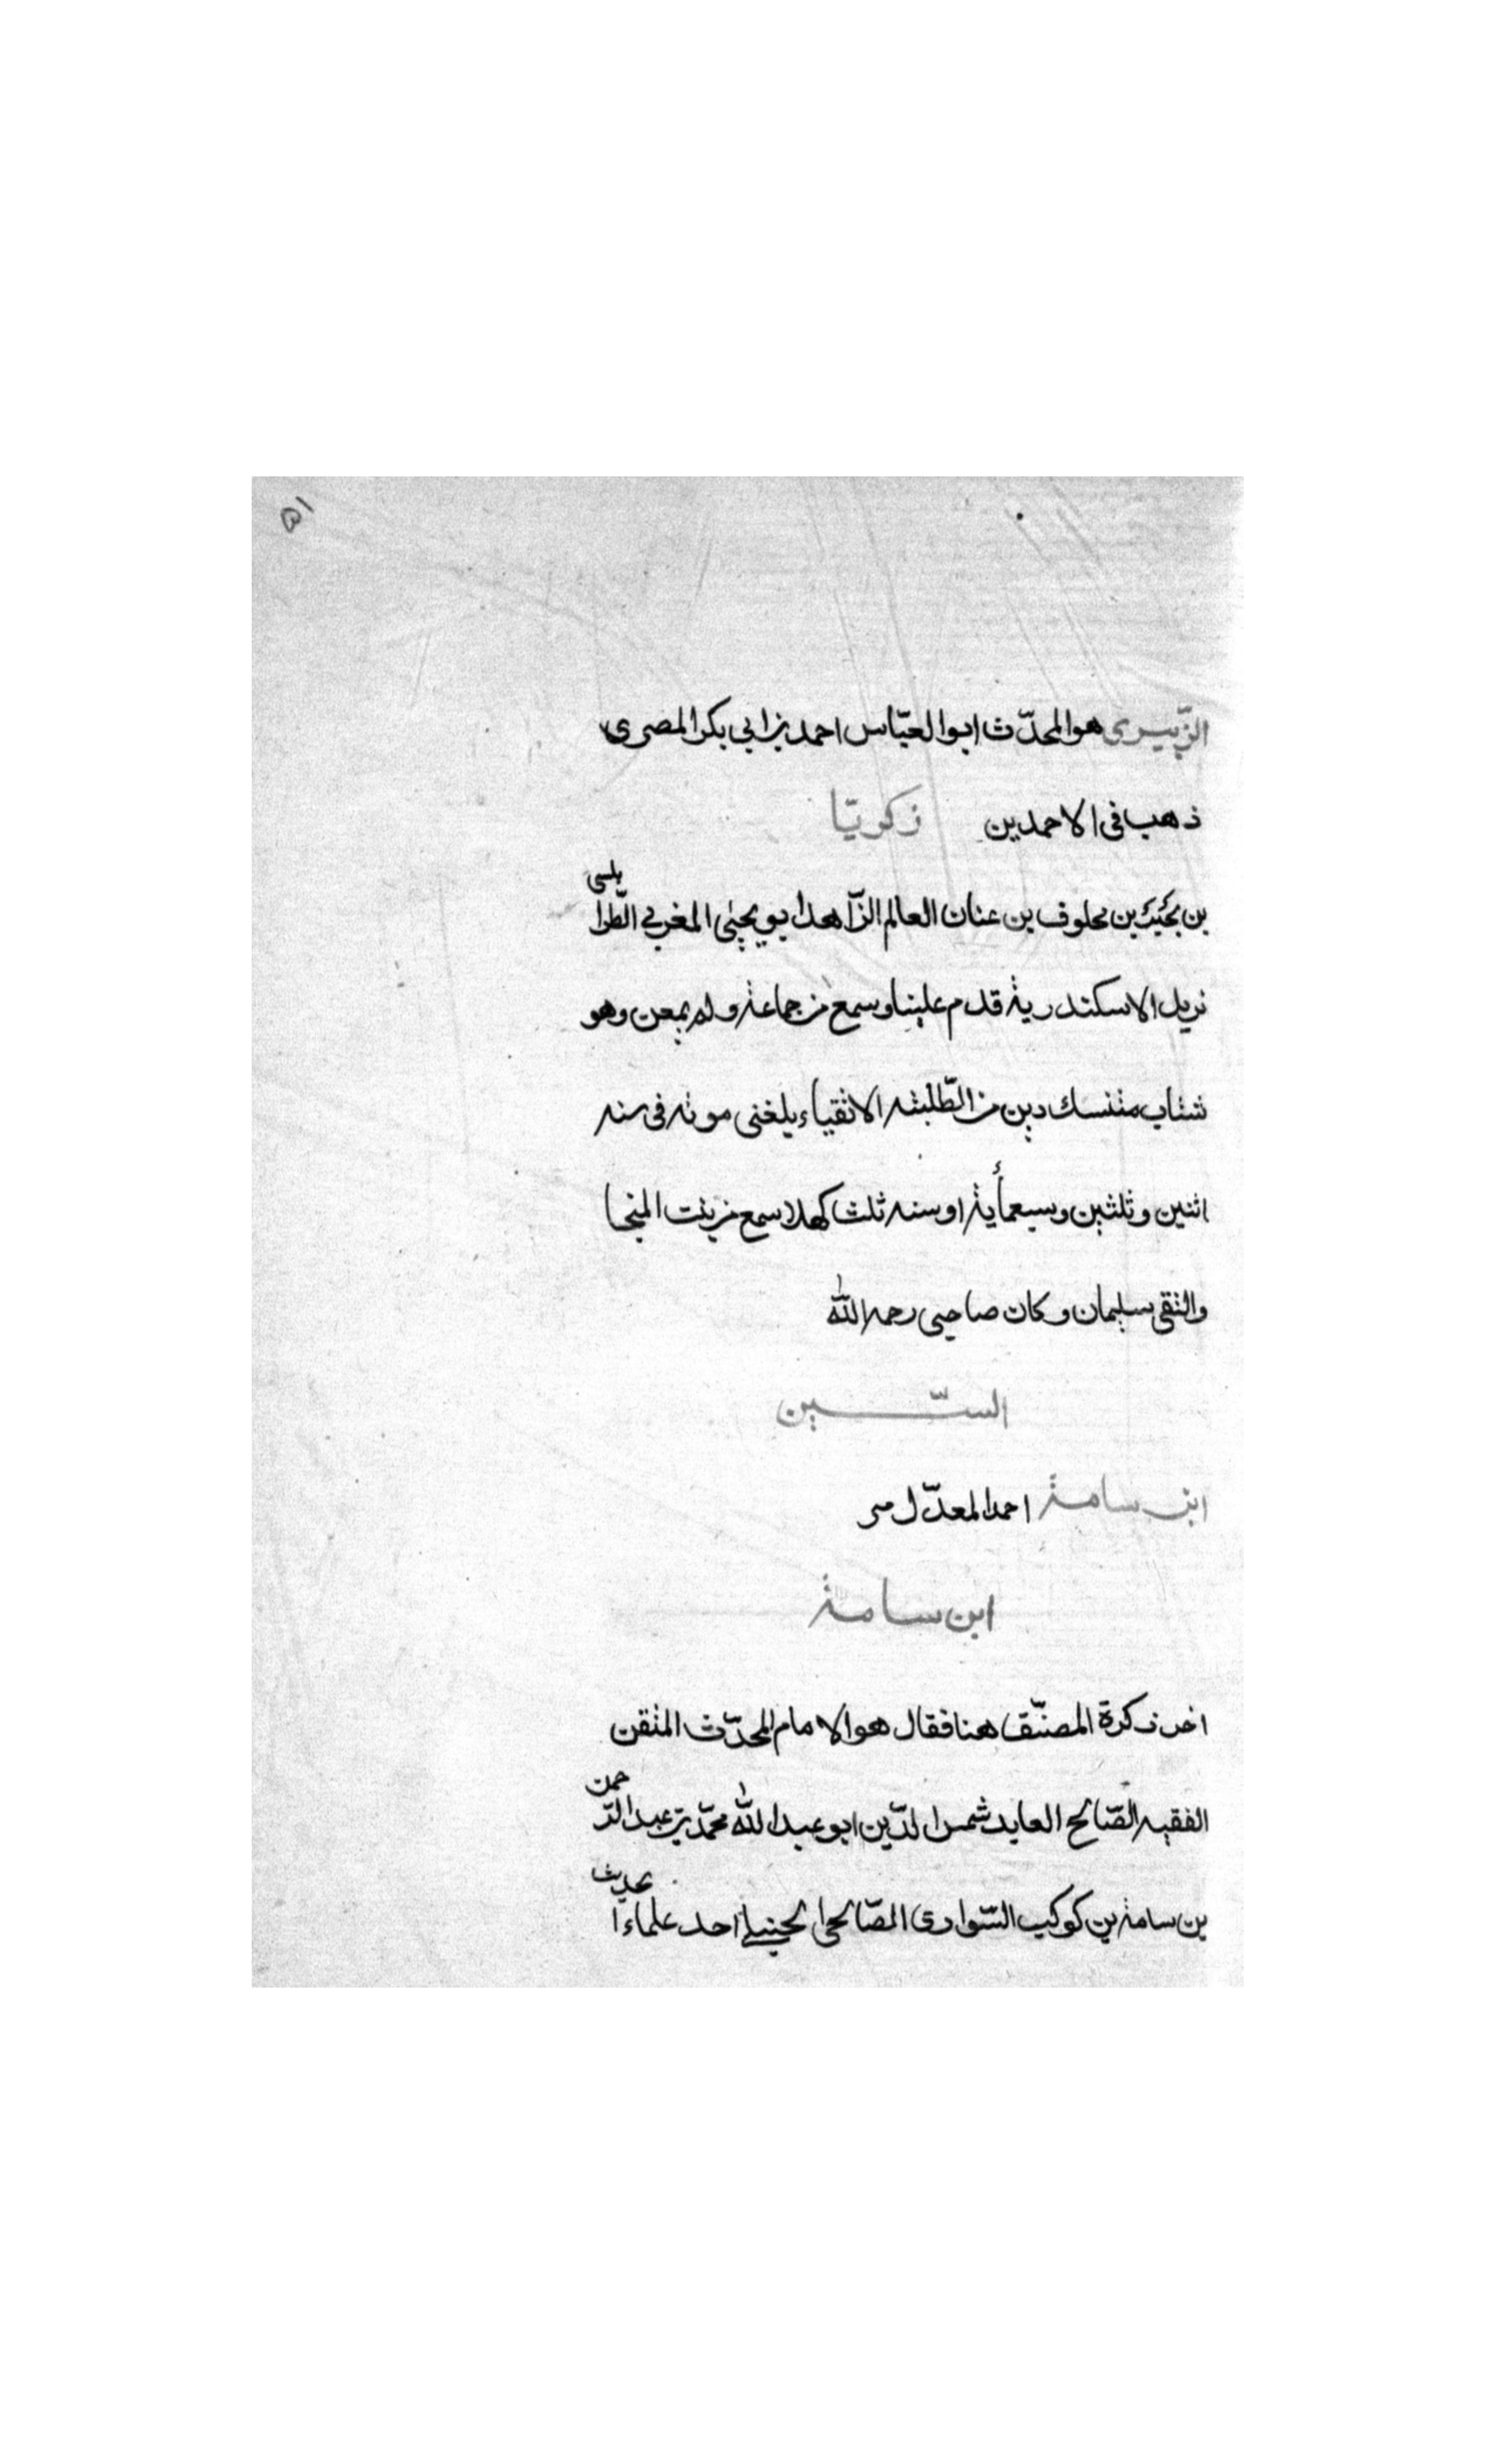 ٥١
الزّبيرى هو المحدّث ابوا العبّاس احمد بن ابي بكر المصرى
ذهب فى الاحمدين زكريّا
بن يحيى بن مخلوف بن عنان العالم الزّاهد ابو يحيٰى المغربي الطّرابلسى
نزيل الاسكندرية قدم علينا وسمع من جماعة ولم يمعن وهو
شاب متنسك دين من الطّلبة الاتقياء بلغنى موته فى سنه
اثنين وثلثين وسبعمأية او سنه ثلث كهلا سمع من بنت المنجا
والتقى سليمان وكان صاحبى رحمه اللّٰه
السّين
ابن سامة احمد المعدّل مر
ابن سامة
اخر ذكرة المصنّف هنا فقال هو الامام المحدّث المتقن
الفقيه الصّالح العابد شمس الدّين ابو عبد اللّٰه محمّد بن عبد الرّحمن
بن سامة بن كوكب السّوادى الصّالحى الحنبلي احد علماء الحديث